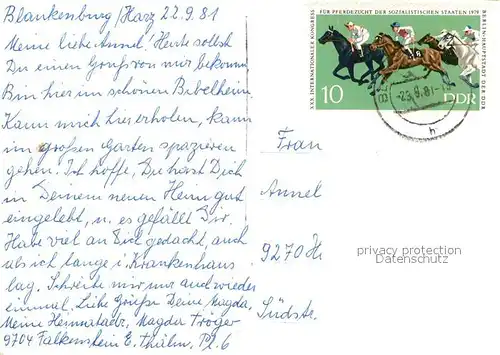 Blankenburg/Harz 22.9.81
Meine liebe Annel! Heute sollst
Du einen Gruß von mir bekomm
Bin hier im schönen Bibelheim
Kann mich hier erholen, kann
im großen Garten spazieren
gehen. Ich hoffe, Du hast Dich
in Deinem neuen Heim gut
eingelebt, u. es gefällt Dir.
Habe viel an Dich gedacht, auch
als ich lange i. Krankenhaus
lag. Schreibe mir nur auch wieder
einmal. Liebe Grüße Deine Magda.
Meine Heimatadr. Magda Tröger
9704 Falkenstein E. Thälm. Pl. 6
XXX. INTERNATIONALER KONGRESS
FÜR PFERDEZUCHT DER SOZIALISTISCHEN STAATEN 1979
BERLIN-HAUPTSTADT DER DDR
10
DDR
-23.9.81-
h
Frau
Annel
9270 H
Südstr.
privacy protection
Datenschutz